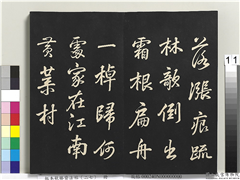 落漲痕疏
林欹倒出
霜根扁舟
一棹歸何
處家在江南
黄葉村
11